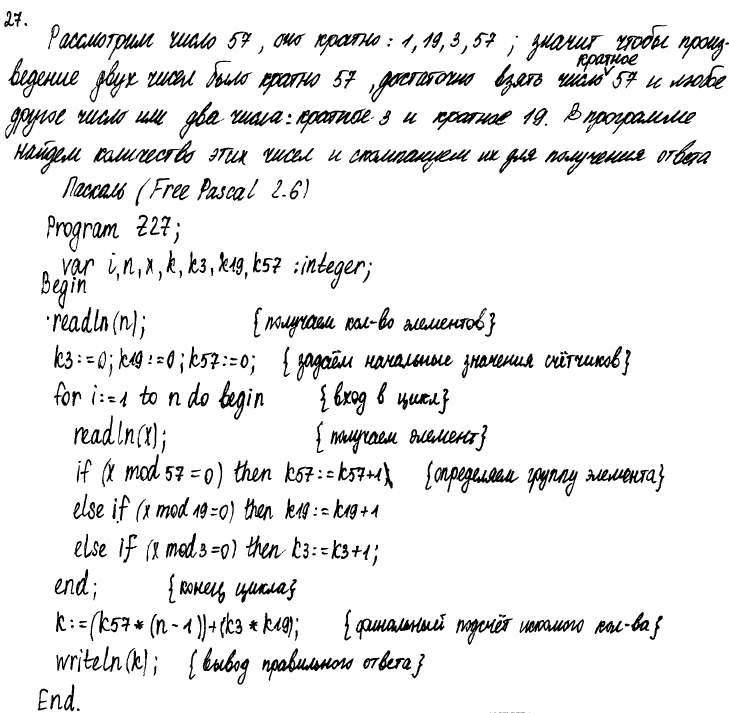 27.
Рассмотрим число 57, оно кратно: 1, 19, 3, 57; значит чтобы произ-
ведение двух чисел было кратно 57, достаточно взять число кратное 57 и любое
другое число или два числа: кратное 3 и кратное 19. В программе
найдем количество этих чисел и скомпануем их для получения ответа
Паскаль (Free Pascal 2.6)
Program Z27;
var i,n,x,k,k3,k19,k57 :integer;
Begin
readln(n); {получаем кол-во элементов}
k3:=0; k19:=0; k57:=0; {задаём начальные значения счётчиков}
for i:=1 to n do begin {вход в цикл}
readln(x); {получаем элемент}
if (x mod 57=0) then k57:=k57+1 {определяем группу элемента}
else if (x mod 19=0) then k19:=k19+1
else if (x mod 3=0) then k3:=k3+1;
end; {конец цикла}
k:=(k57*(n-1))+(k3*k19); {финальный подсчёт искомого кол-ва}
writeln(k); {вывод правильного ответа}
End.